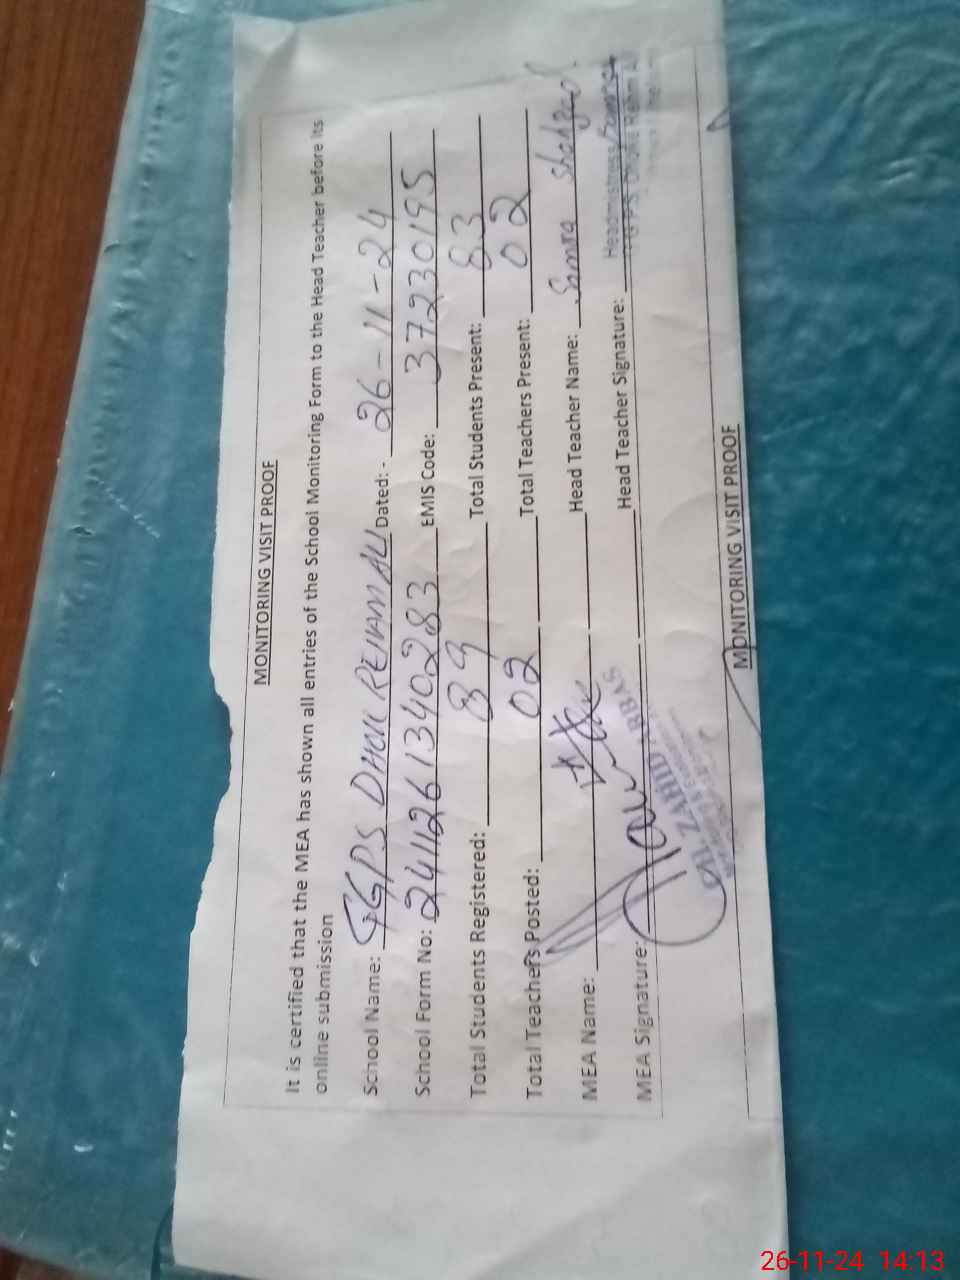 MONITORING VISIT PROOF
It is certified that the MEA has shown all entries of the School Monitoring Form to the Head Teacher before its
online submission
School Name: GGPS DHOK REHAM ALI Dated: - 26-11-24
School Form No: 241126134028 3 EMIS Code: 37230195
Total Students Registered: 89 Total Students Present: 83
Total Teachers Posted: 02 Total Teachers Present: 02
MEA Name: Head Teacher Name: Samra Shahzad
MEA Signature: Head Teacher Signature:
ZAHID ABBAS
Headmistress
MONITORING VISIT PROOF
26-11-24 14:13